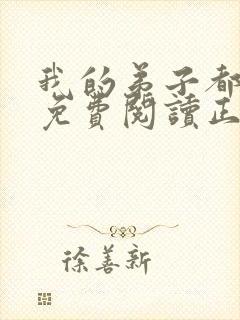 我的弟子都
免費閱讀正
徐善新